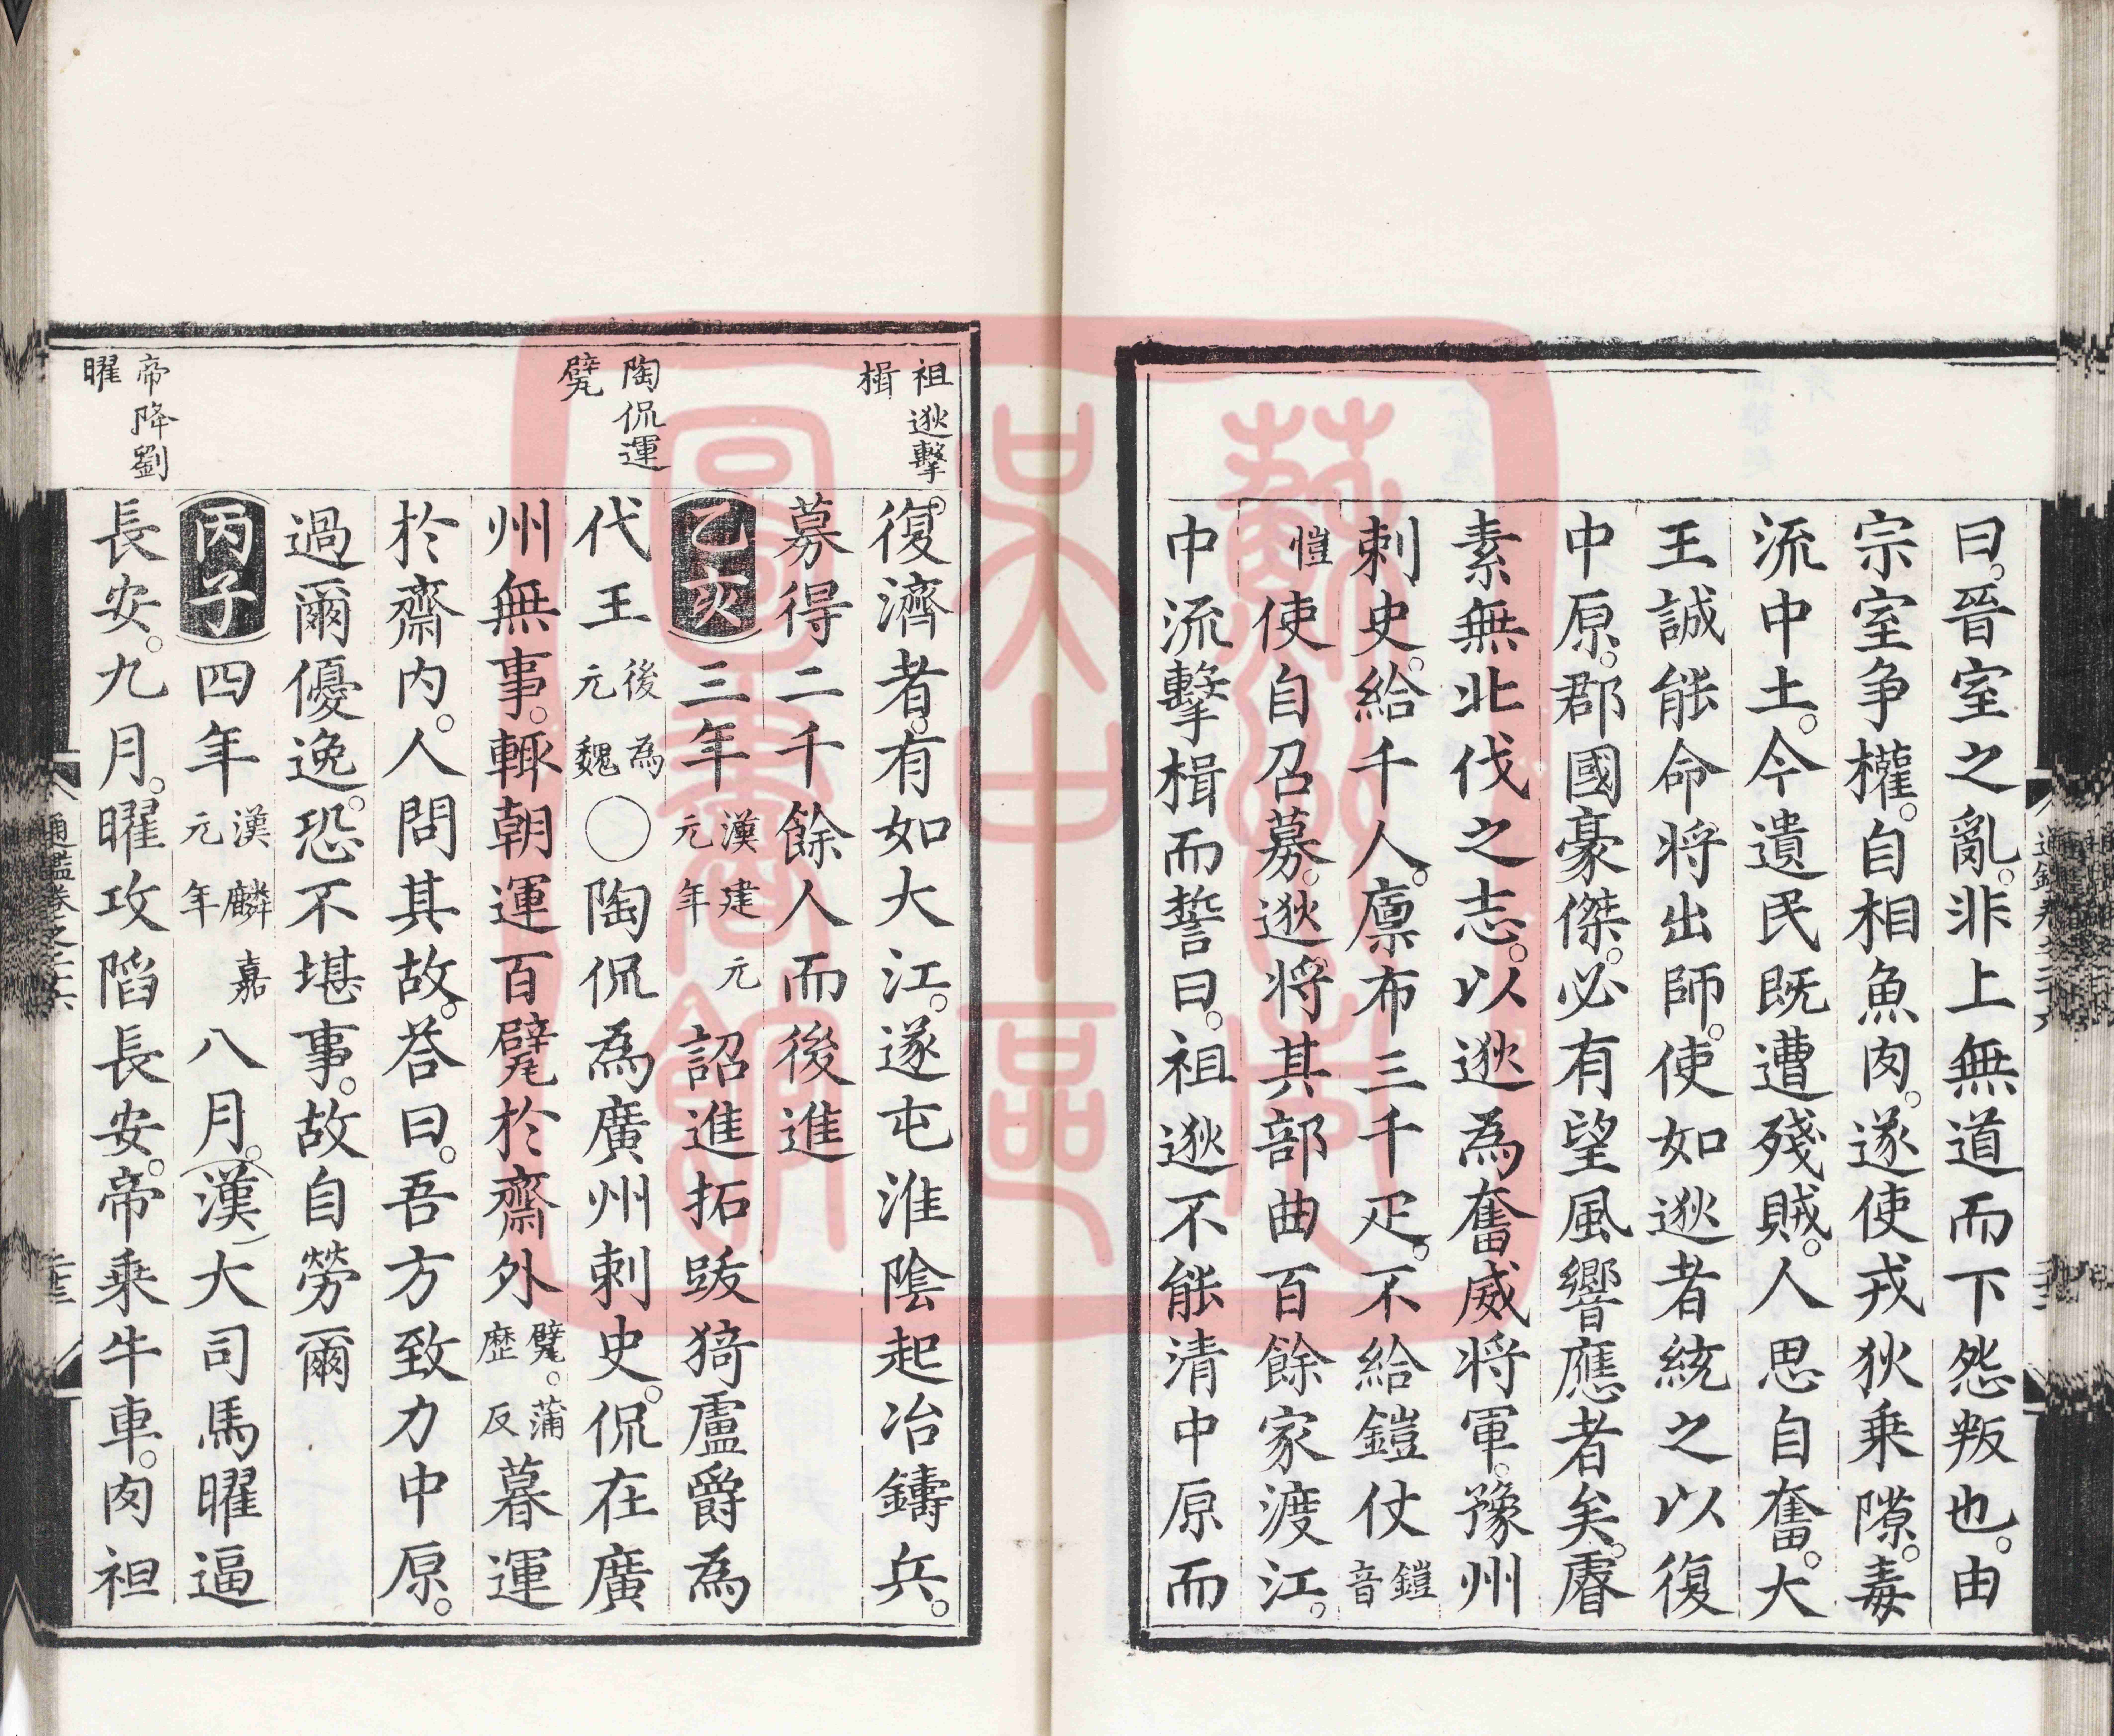 曰。晉室之亂。非上無道而下怨叛也。由
宗室争權。自相魚肉。遂使戎狄乗隙。毒
流中土。今遺民既遭殘賊。人思自奮。大
王誠能命将出師。使如逖者統之以復
中原。郡國豪傑。必有望風響應者矣。睿
素無北伐之志。以逖為奮威将軍。豫州
刺史。給千人。廪布三千疋。不給鎧仗鎧音
愷使自召募。逖将其部曲百餘家渡江。
中流擊楫而誓曰。祖逖不能清中原而
祖逖擊
楫
復濟者。有如大江。遂屯淮陰起冶鑄兵。
募得二千餘人而後進
乙亥三年漢建元元年詔進拓跋猗盧爵為
陶侃運
甓
代王後為元魏〇陶侃為廣州刺史。侃在廣
州無事。輒朝運百甓於齋外甓。蒲歴反暮運
於齋内。人問其故。荅曰。吾方致力中原。
過爾優逸。恐不堪事。故自勞爾
丙子四年漢麟嘉元年八月。漢大司馬曜逼
帝降劉
曜
長安。九月。曜攻陷長安。帝乗牛車。肉袒
通鑑卷之二十六
蘇州市
吳中區
圖書館